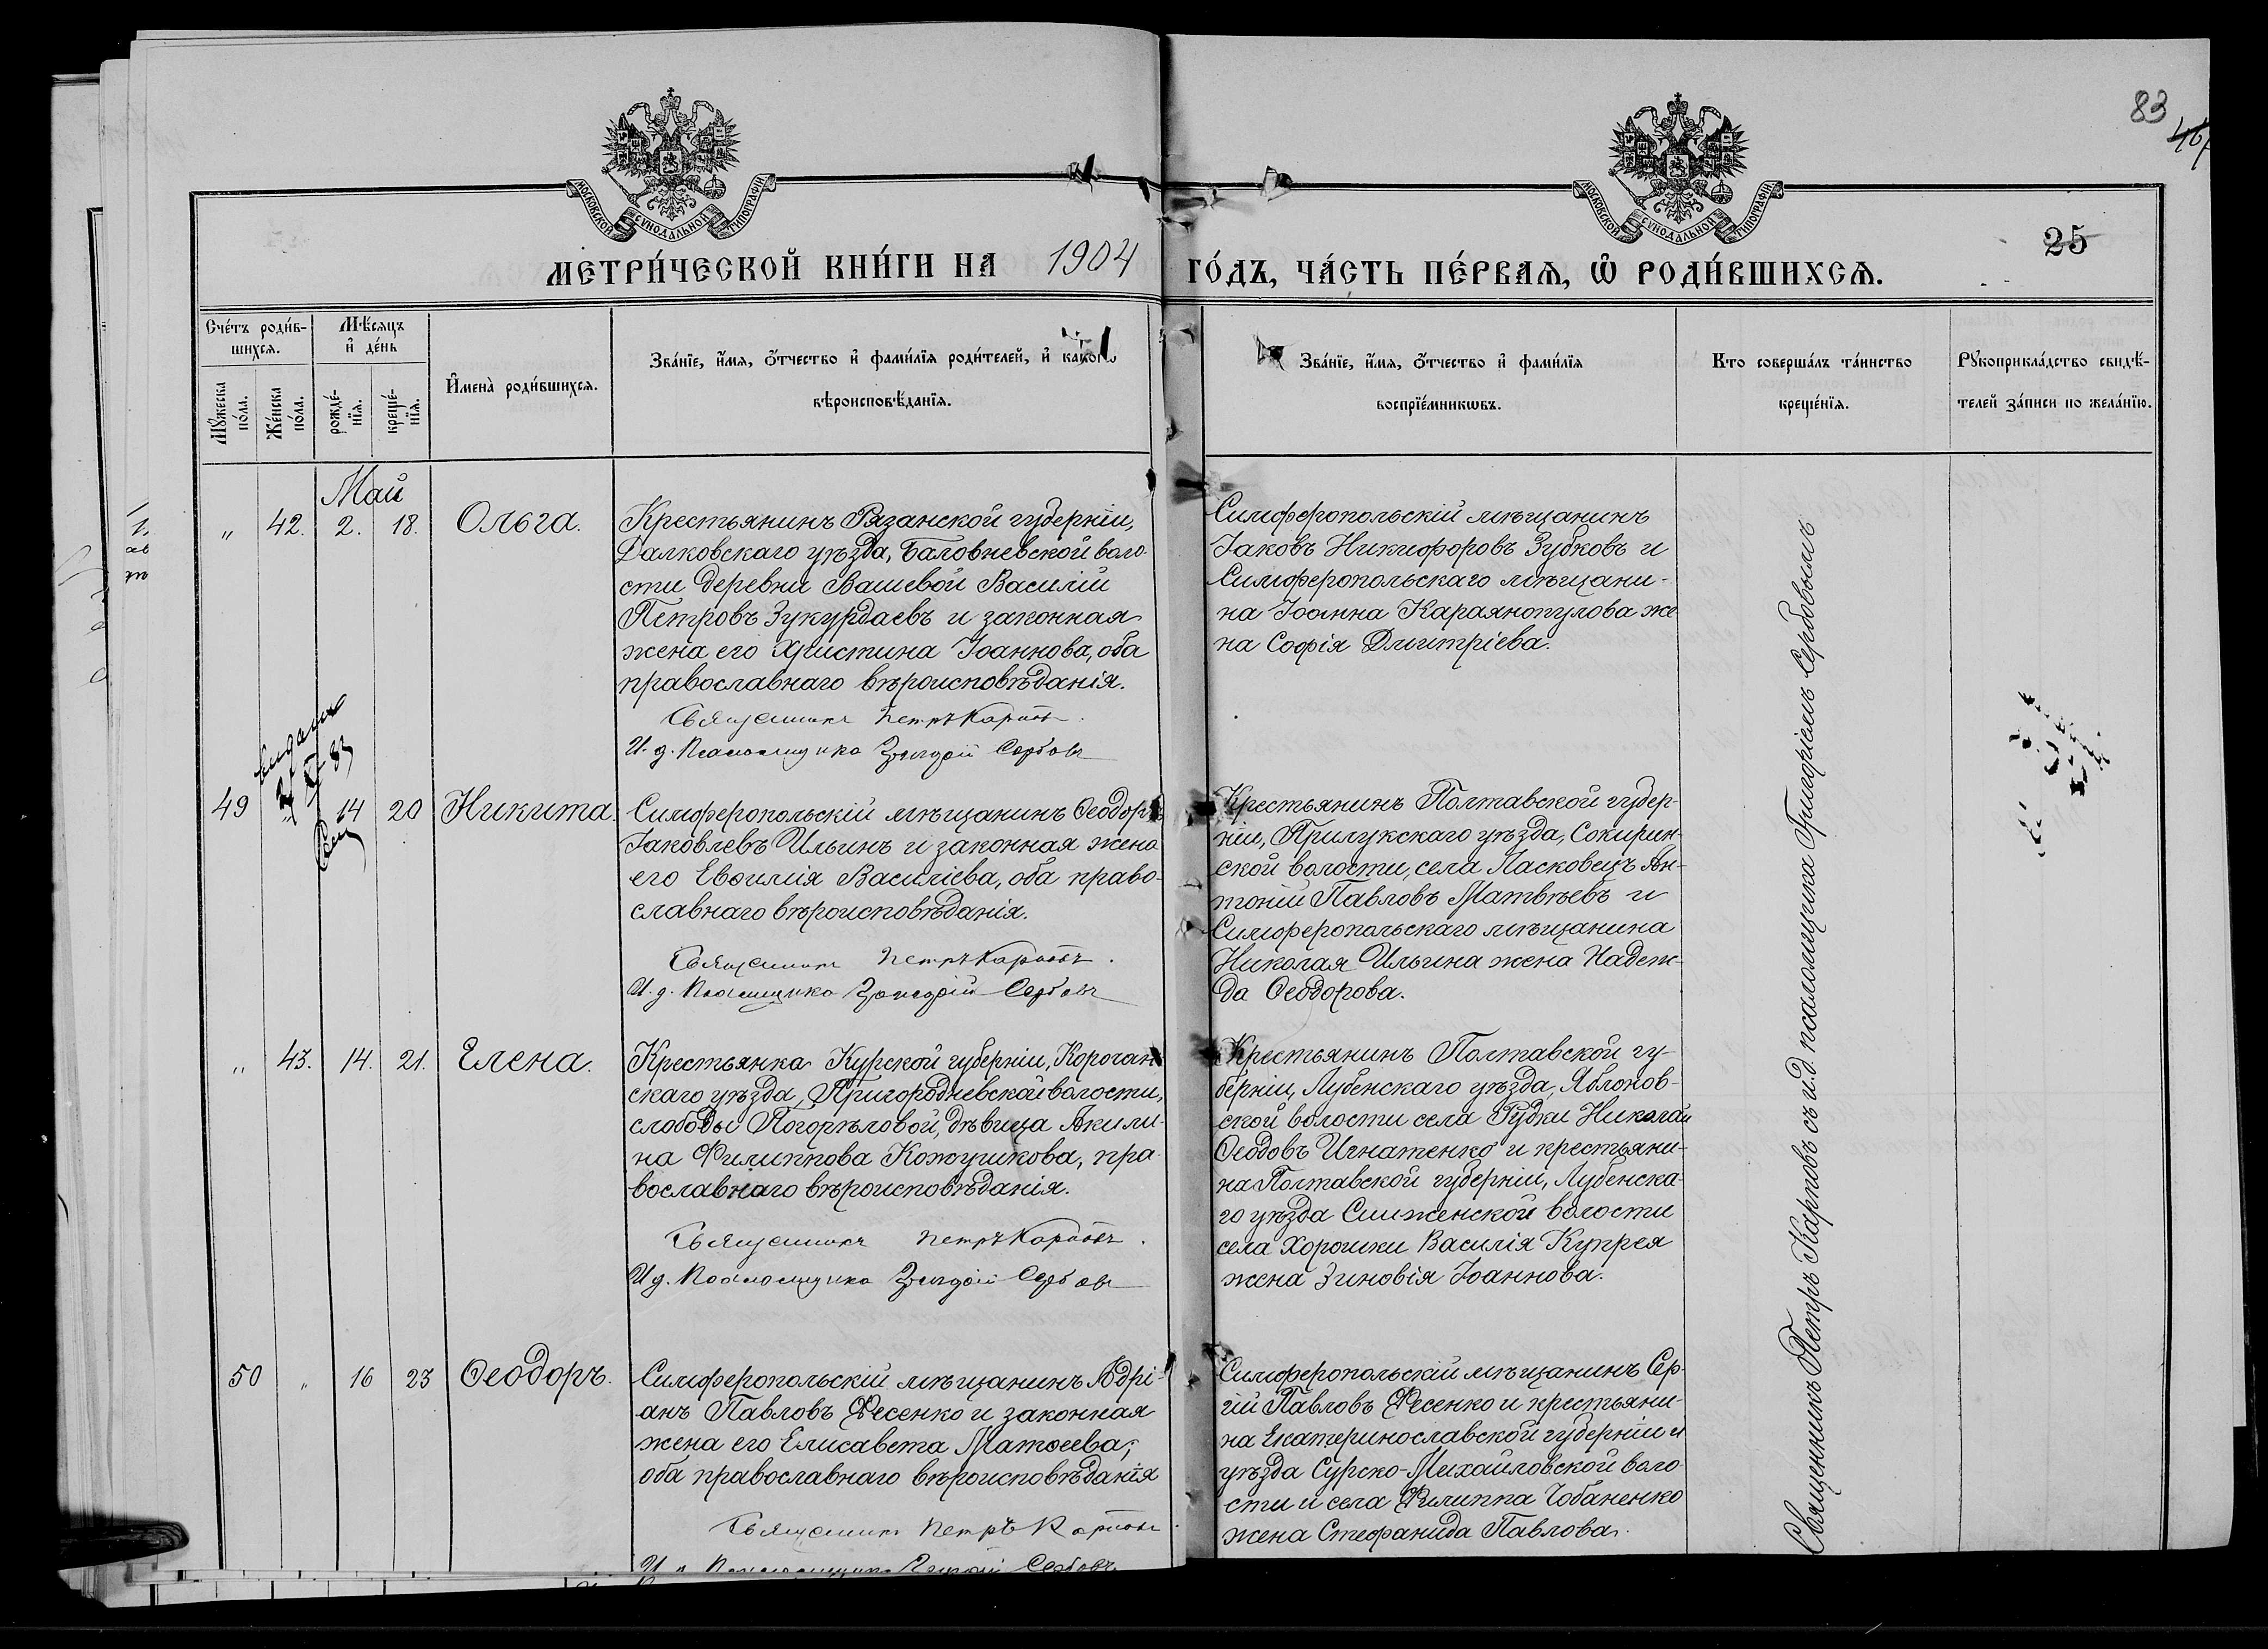 83
46
МОСКОВСКОЙ СУНОДАЛЬНОЙ ТИПОГРАФІИ
МОСКОВСКОЙ СУНОДАЛЬНОЙ ТИПОГРАФІИ
25
МЕТРИ́ЧЕСКОЙ КНИ́ГИ НА 1904 ГО́ДЪ, ЧА́СТЬ ПЕ́РВАѦ, Ѡ РОДИ́ВШИХСѦ.
Сче́тъ роди́в-
шихсѧ.
Мꙋ́жеска по́ла.
Же́нска по́ла.
Мѣ́сяцъ
и де́нь
рожде́-
нїѧ.
креще́-
нїѧ.
Имена̀ роди́вшихсѧ.
Зва́нїе, и́мѧ, ѻ́тчество и фами́лїѧ роди́телей, и како́гѡ
вѣроисповѣ́данїѧ.
Зва́нїе, и́мѧ, ѻ́тчество и фами́лїѧ
воспрїе́мникѡвъ.
Кто соверша́лъ та́инство
креще́нїѧ.
Рꙋкоприкла́дство свидѣ́-
телей за́писи по жела́нїю.
Май
" 42. 2. 18. Ольга.
Крестьянинъ Рязанской губерніи,
Далковскаго уѣзда, Баловневской воло-
сти деревни Вашевой Василій
Петровъ Зукурдаевъ и законная
жена его Христина Іоаннова, оба
православнаго вѣроисповѣданія.
Священникъ Петръ Карповъ.
И. д. Псаломщика Григорій Сербовъ
Симферопольскій мѣщанинъ
Іаковъ Никифоровъ Зубковъ и
Симферопольскаго мѣщани-
на Іоанна Караянопулова же
на Софія Димитріева.
49 " 14 20 Никита.
Симферопольскій мѣщанинъ Ѳеодоръ
Іаковлевъ Ильинъ и законная жена
его Евѳимія Василіева, оба право-
славнаго вѣроисповѣданія.
Священникъ Петръ Карповъ.
И. д. Псаломщика Григорій Сербовъ
Крестьянинъ Полтавской губер-
ніи, Прилукскаго уѣзда, Сокирин-
ской волости, села Ласковецъ Ан-
тоній Павловъ Матвѣевъ и
Симферопольскаго мѣщанина
Николая Ильина жена Надеж-
да Ѳеодорова.
" 43. 14. 21. Елена.
Крестьянка Курской губерніи, Корочан-
скаго уѣзда, Пригородневской волости,
слободы Погорѣловой, дѣвица Акили-
на Филиппова Кожушкова, пра-
вославнаго вѣроисповѣданія.
Священникъ Петръ Карповъ.
И. д. Псаломщика Григорій Сербовъ
Крестьянинъ Полтавской гу-
берніи, Лубенскаго уѣзда, Яблонов-
ской волости села Рудки Николай
Ѳеодовъ Игнатенко и крестьяни-
на Полтавской губерніи, Лубенска-
го уѣзда Снѣженской волости
села Хорошки Василія Купрея
жена Зиновія Іоаннова.
50 " 16 23 Ѳеодоръ.
Симферопольскій мѣщанинъ Адрі-
анъ Павловъ Фесенко и законная
жена его Елисавета Матѳеева,
оба православнаго вѣроисповѣданія
Священникъ Петръ Карповъ
И. д. Псаломщика Григорій Сербовъ
Симферопольскій мѣщанинъ Сер-
гій Павловъ Фесенко и крестьяни-
на Екатеринославской губерніи и
уѣзда Сурско-Михайловской воло-
сти и села Филиппа Чобаненко
жена Стефанида Павлова.
Священникъ Петръ Карповъ съ и.д. псаломщика Григоріемъ Сербовымъ